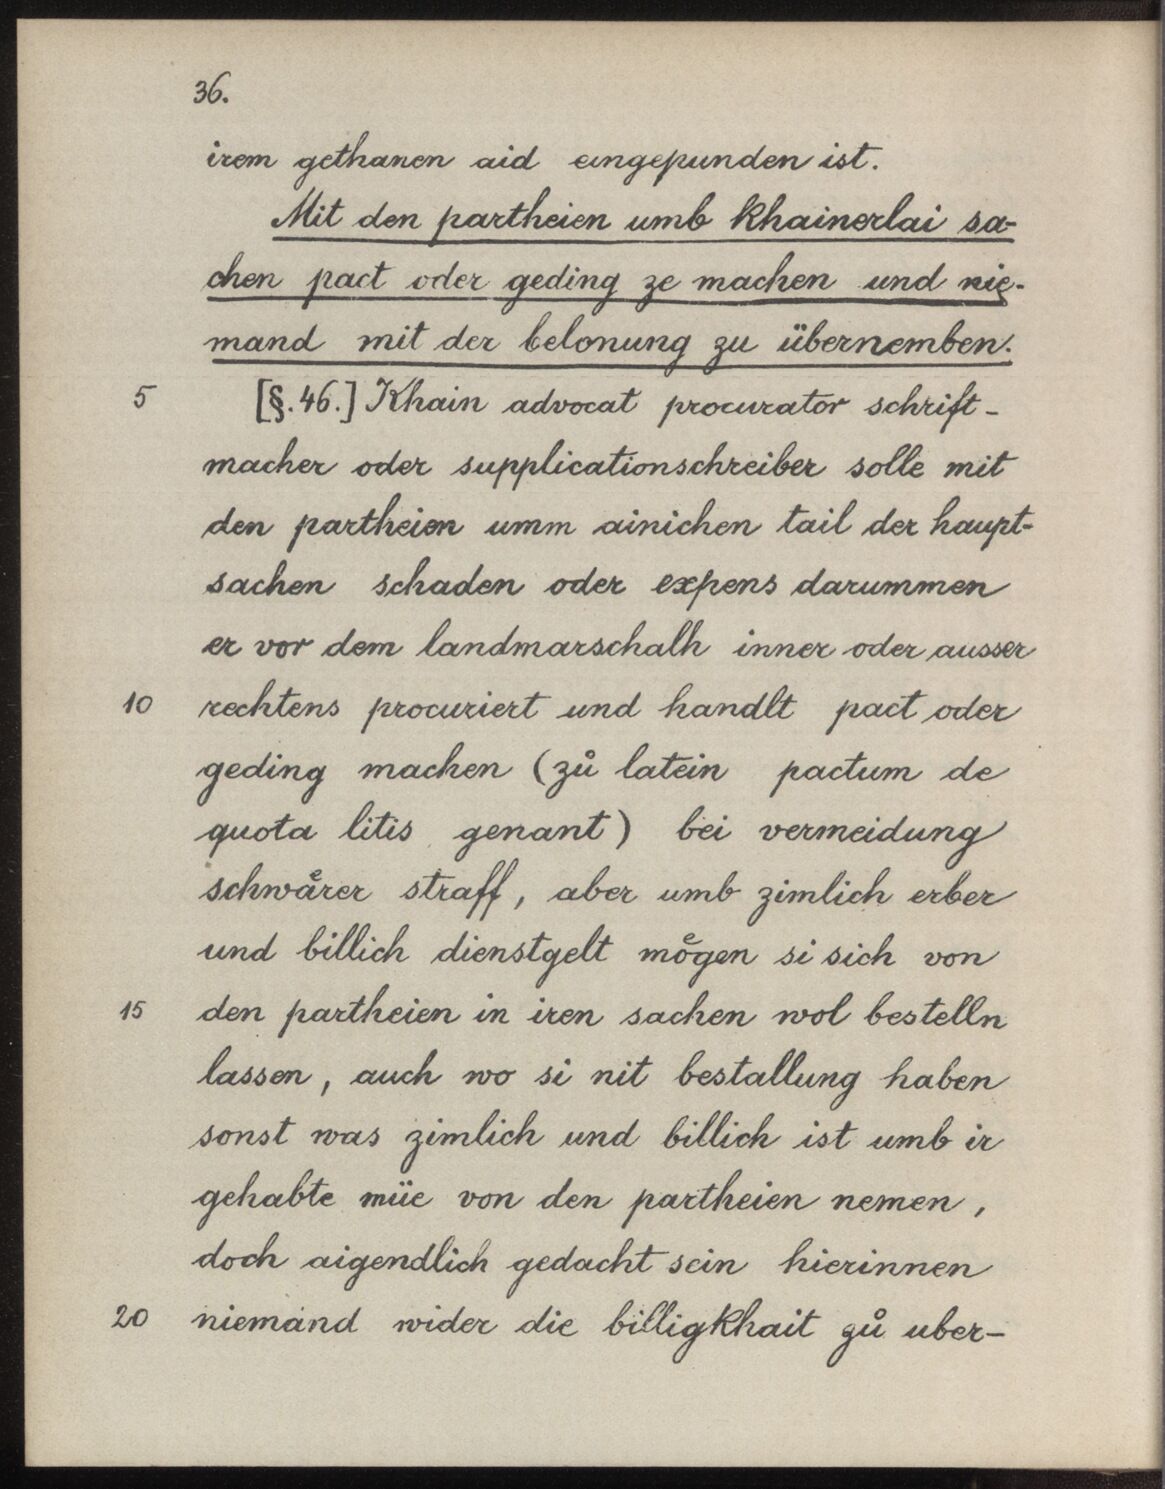 36.
irem gethanen aid eingepunden ist.
Mit den partheien umb khainerlai sa-
chen pact oder geding ze machen und nie-
mand mit der belonung zu übernemben.
5 [§.46.] Khain advocat procurator schrift-
macher oder supplicationschreiber solle mit
den partheien umm ainichen tail der haupt-
sachen schaden oder expens darummen
er vor dem landmarschalh inner oder ausser
10 rechtens procuriert und handlt pact oder
geding machen (zů latein pactum de
quota litis genant) bei vermeidung
schwaͤrer straff, aber umb zimlich erber
und billich dienstgelt moͤgen si sich von
15 den partheien in iren sachen wol bestelln
lassen, auch wo si nit bestallung haben
sonst was zimlich und billich ist umb ir
gehabte müe von den partheien nemen,
doch aigendlich gedacht sein hierinnen
20 niemand wider die billigkhait zů uber-